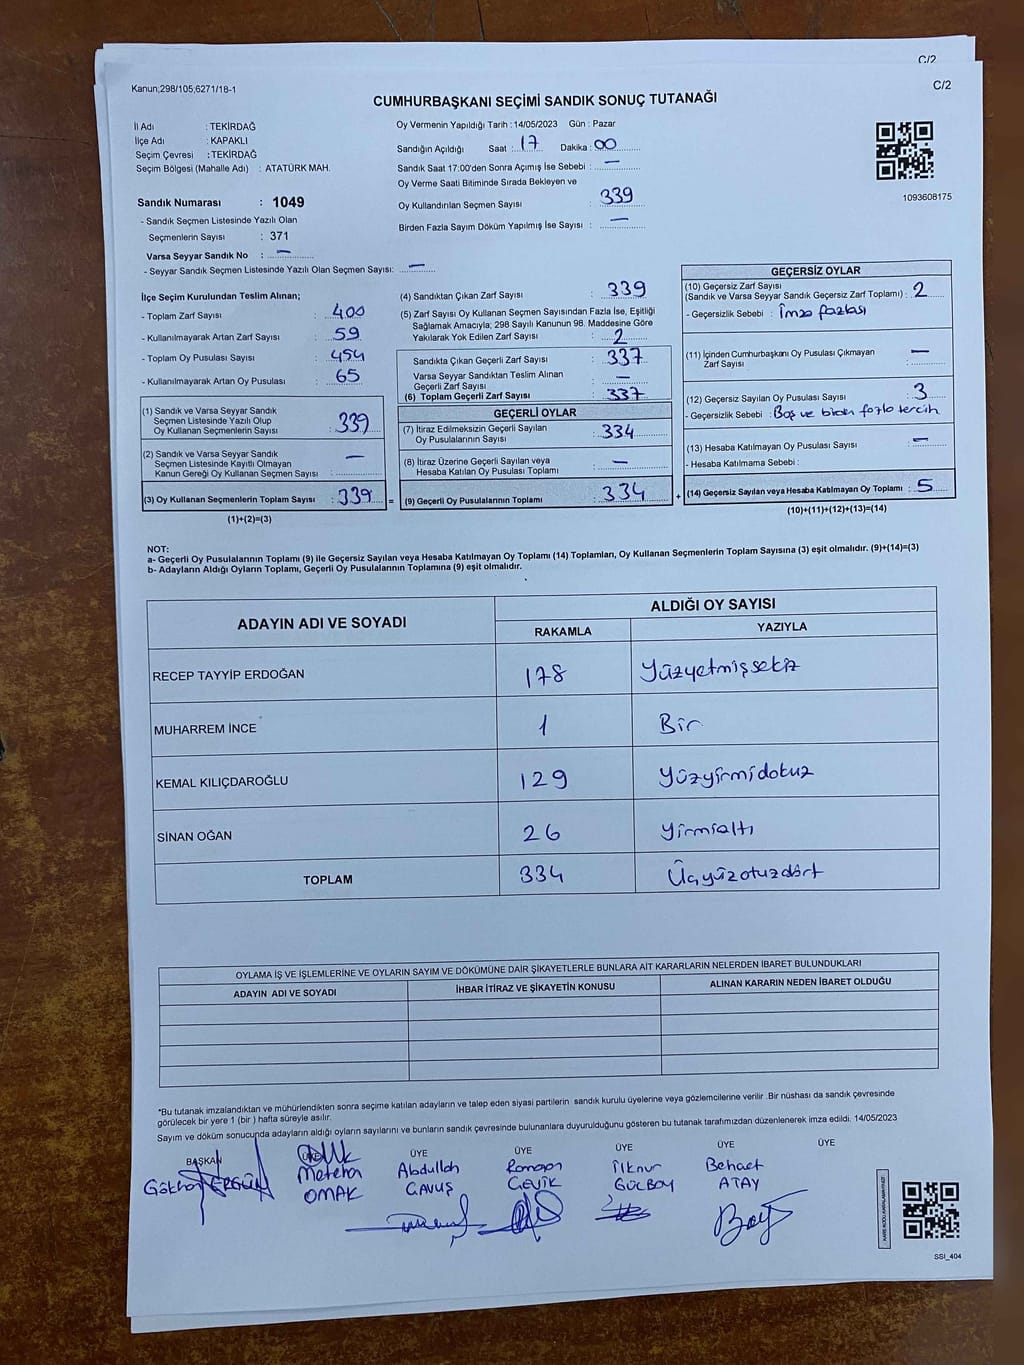 C/2
Kanun;298/105;6271/18-1
C/2
CUMHURBAŞKANI SEÇİMİ SANDIK SONUÇ TUTANAĞI
İl Adı : TEKİRDAĞ
İlçe Adı : KAPAKLI
Seçim Çevresi : TEKİRDAĞ
Seçim Bölgesi (Mahalle Adı) : ATATÜRK MAH.
Oy Vermenin Yapıldığı Tarih : 14/05/2023 Gün : Pazar
Sandığın Açıldığı Saat : 17 Dakika : 00
Sandık Saat 17:00'den Sonra Açımış İse Sebebi : —
Oy Verme Saati Bitiminde Sırada Bekleyen ve
Oy Kullandırılan Seçmen Sayısı : 339
Birden Fazla Sayım Döküm Yapılmış İse Sayısı : —
1093608175
Sandık Numarası : 1049
- Sandık Seçmen Listesinde Yazılı Olan
Seçmenlerin Sayısı : 371
Varsa Seyyar Sandık No : —
- Seyyar Sandık Seçmen Listesinde Yazılı Olan Seçmen Sayısı: —
İlçe Seçim Kurulundan Teslim Alınan;
- Toplam Zarf Sayısı : 400
- Kullanılmayarak Artan Zarf Sayısı : 59
- Toplam Oy Pusulası Sayısı : 454
- Kullanılmayarak Artan Oy Pusulası : 65
(1) Sandık ve Varsa Seyyar Sandık
Seçmen Listesinde Yazılı Olup
Oy Kullanan Seçmenlerin Sayısı : 339
(2) Sandık ve Varsa Seyyar Sandık
Seçmen Listesinde Kayıtlı Olmayan
Kanun Gereği Oy Kullanan Seçmen Sayısı : —
(3) Oy Kullanan Seçmenlerin Toplam Sayısı : 339 =
(1)+(2)=(3)
(4) Sandıktan Çıkan Zarf Sayısı : 339
(5) Zarf Sayısı Oy Kullanan Seçmen Sayısından Fazla İse, Eşitliği
Sağlamak Amacıyla; 298 Sayılı Kanunun 98. Maddesine Göre
Yakılarak Yok Edilen Zarf Sayısı : 2
Sandıkta Çıkan Geçerli Zarf Sayısı : 337
Varsa Seyyar Sandıktan Teslim Alınan
Geçerli Zarf Sayısı : —
(6) Toplam Geçerli Zarf Sayısı : 337
GEÇERLİ OYLAR
(7) İtiraz Edilmeksizin Geçerli Sayılan
Oy Pusulalarının Sayısı : 334
(8) İtiraz Üzerine Geçerli Sayılan veya
Hesaba Katılan Oy Pusulası Toplamı : —
(9) Geçerli Oy Pusulalarının Toplamı : 334 +
GEÇERSİZ OYLAR
(10) Geçersiz Zarf Sayısı
(Sandık ve Varsa Seyyar Sandık Geçersiz Zarf Toplamı) : 2
- Geçersizlik Sebebi : İmza fazlası
(11) İçinden Cumhurbaşkanı Oy Pusulası Çıkmayan
Zarf Sayısı : —
(12) Geçersiz Sayılan Oy Pusulası Sayısı : 3
- Geçersizlik Sebebi : Boş ve birden fazla tercih
(13) Hesaba Katılmayan Oy Pusulası Sayısı : —
- Hesaba Katılmama Sebebi :
(14) Geçersiz Sayılan veya Hesaba Katılmayan Oy Toplamı : 5
(10)+(11)+(12)+(13)=(14)
NOT:
a- Geçerli Oy Pusulalarının Toplamı (9) ile Geçersiz Sayılan veya Hesaba Katılmayan Oy Toplamı (14) Toplamları, Oy Kullanan Seçmenlerin Toplam Sayısına (3) eşit olmalıdır. (9)+(14)=(3)
b- Adayların Aldığı Oyların Toplamı, Geçerli Oy Pusulalarının Toplamına (9) eşit olmalıdır.
ADAYIN ADI VE SOYADI
ALDIĞI OY SAYISI
RAKAMLA YAZIYLA
RECEP TAYYİP ERDOĞAN 178 Yüzyetmişsekiz
MUHARREM İNCE 1 Bir
KEMAL KILIÇDAROĞLU 129 Yüzyirmidokuz
SİNAN OĞAN 26 Yirmialtı
TOPLAM 334 Üçyüzotuzdört
OYLAMA İŞ VE İŞLEMLERİNE VE OYLARIN SAYIM VE DÖKÜMÜNE DAİR ŞİKAYETLERLE BUNLARA AİT KARARLARIN NELERDEN İBARET BULUNDUKLARI
ADAYIN ADI VE SOYADI İHBAR İTİRAZ VE ŞİKAYETİN KONUSU ALINAN KARARIN NEDEN İBARET OLDUĞU
*Bu tutanak imzalandıktan ve mühürlendikten sonra seçime katılan adayların ve talep eden siyasi partilerin sandık kurulu üyelerine veya gözlemcilerine verilir .Bir nüshası da sandık çevresinde
görülecek bir yere 1 (bir ) hafta süreyle asılır.
Sayım ve döküm sonucunda adayların aldığı oyların sayılarını ve bunların sandık çevresinde bulunanlara duyurulduğunu gösteren bu tutanak tarafımızdan düzenlenerek imza edildi. 14/05/2023
BAŞKAN ÜYE ÜYE ÜYE ÜYE ÜYE ÜYE
Gökhan ERGÜN
Metehan OMAK
Abdullah ÇAVUŞ
Ramazan ÇEVİK
İlknur GÜCBOY
Behaet ATAY
SSI_404